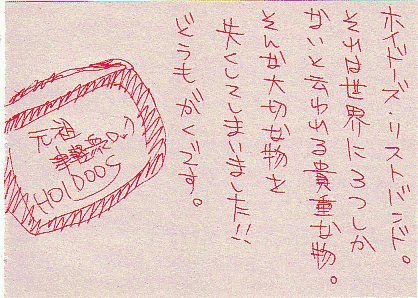 ホイドーズ・リストバンド。
それは世界に3つしか
ないと云われる貴重な物。
そんな大切な物を
失くしてしまいました!!
どうもがくです。
元祖
HOIDOOS